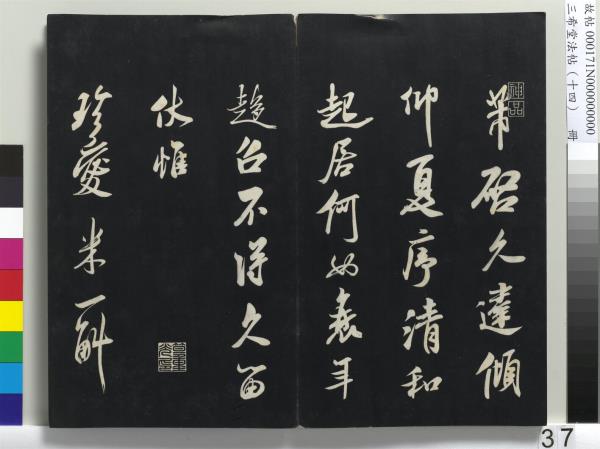 故帖 000171N000000000
三希堂法帖（十四） 冊
神品
芾啓久違傾
仰夏序清和
起居何如衰年
趍召不得久留
伏惟
珍愛米一斛
37